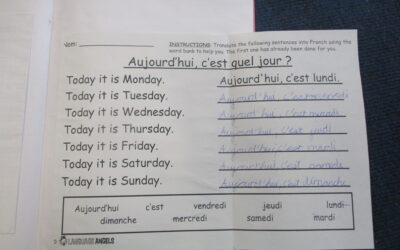 Nom:
INSTRUCTIONS: Translate the following sentences into French using the
word bank to help you. The first one has already been done for you.
Aujourd'hui, c'est quel jour ?
Today it is Monday. Aujourd'hui, c'est lundi.
Today it is Tuesday. Aujourd'hui, c'est
Today it is Wednesday. Aujourd'hui, c'est
Today it is Thursday. Aujourd'hui, c'est
Today it is Friday. Aujourd'hui, c'est
Today it is Saturday. Aujourd'hui, c'est
Today it is Sunday. Aujourd'hui, c'est dimanche
Aujourd'hui c'est vendredi jeudi lundi
dimanche mercredi samedi mardi
LANGUAGE ANGELS